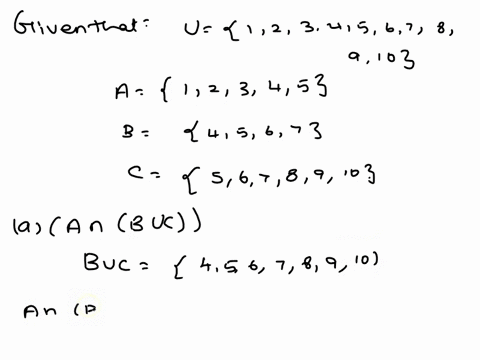 Given that: U = { 1, 2, 3. 4, 5, 6, 7, 8,
9, 10 }
A = { 1, 2, 3, 4, 5 }
B = { 4, 5, 6, 7 }
C = { 5, 6, 7, 8, 9, 10 }
(a) (A ∩ (B ∪ C))
B ∪ C = { 4, 5, 6, 7, 8, 9, 10 )
A ∩ (